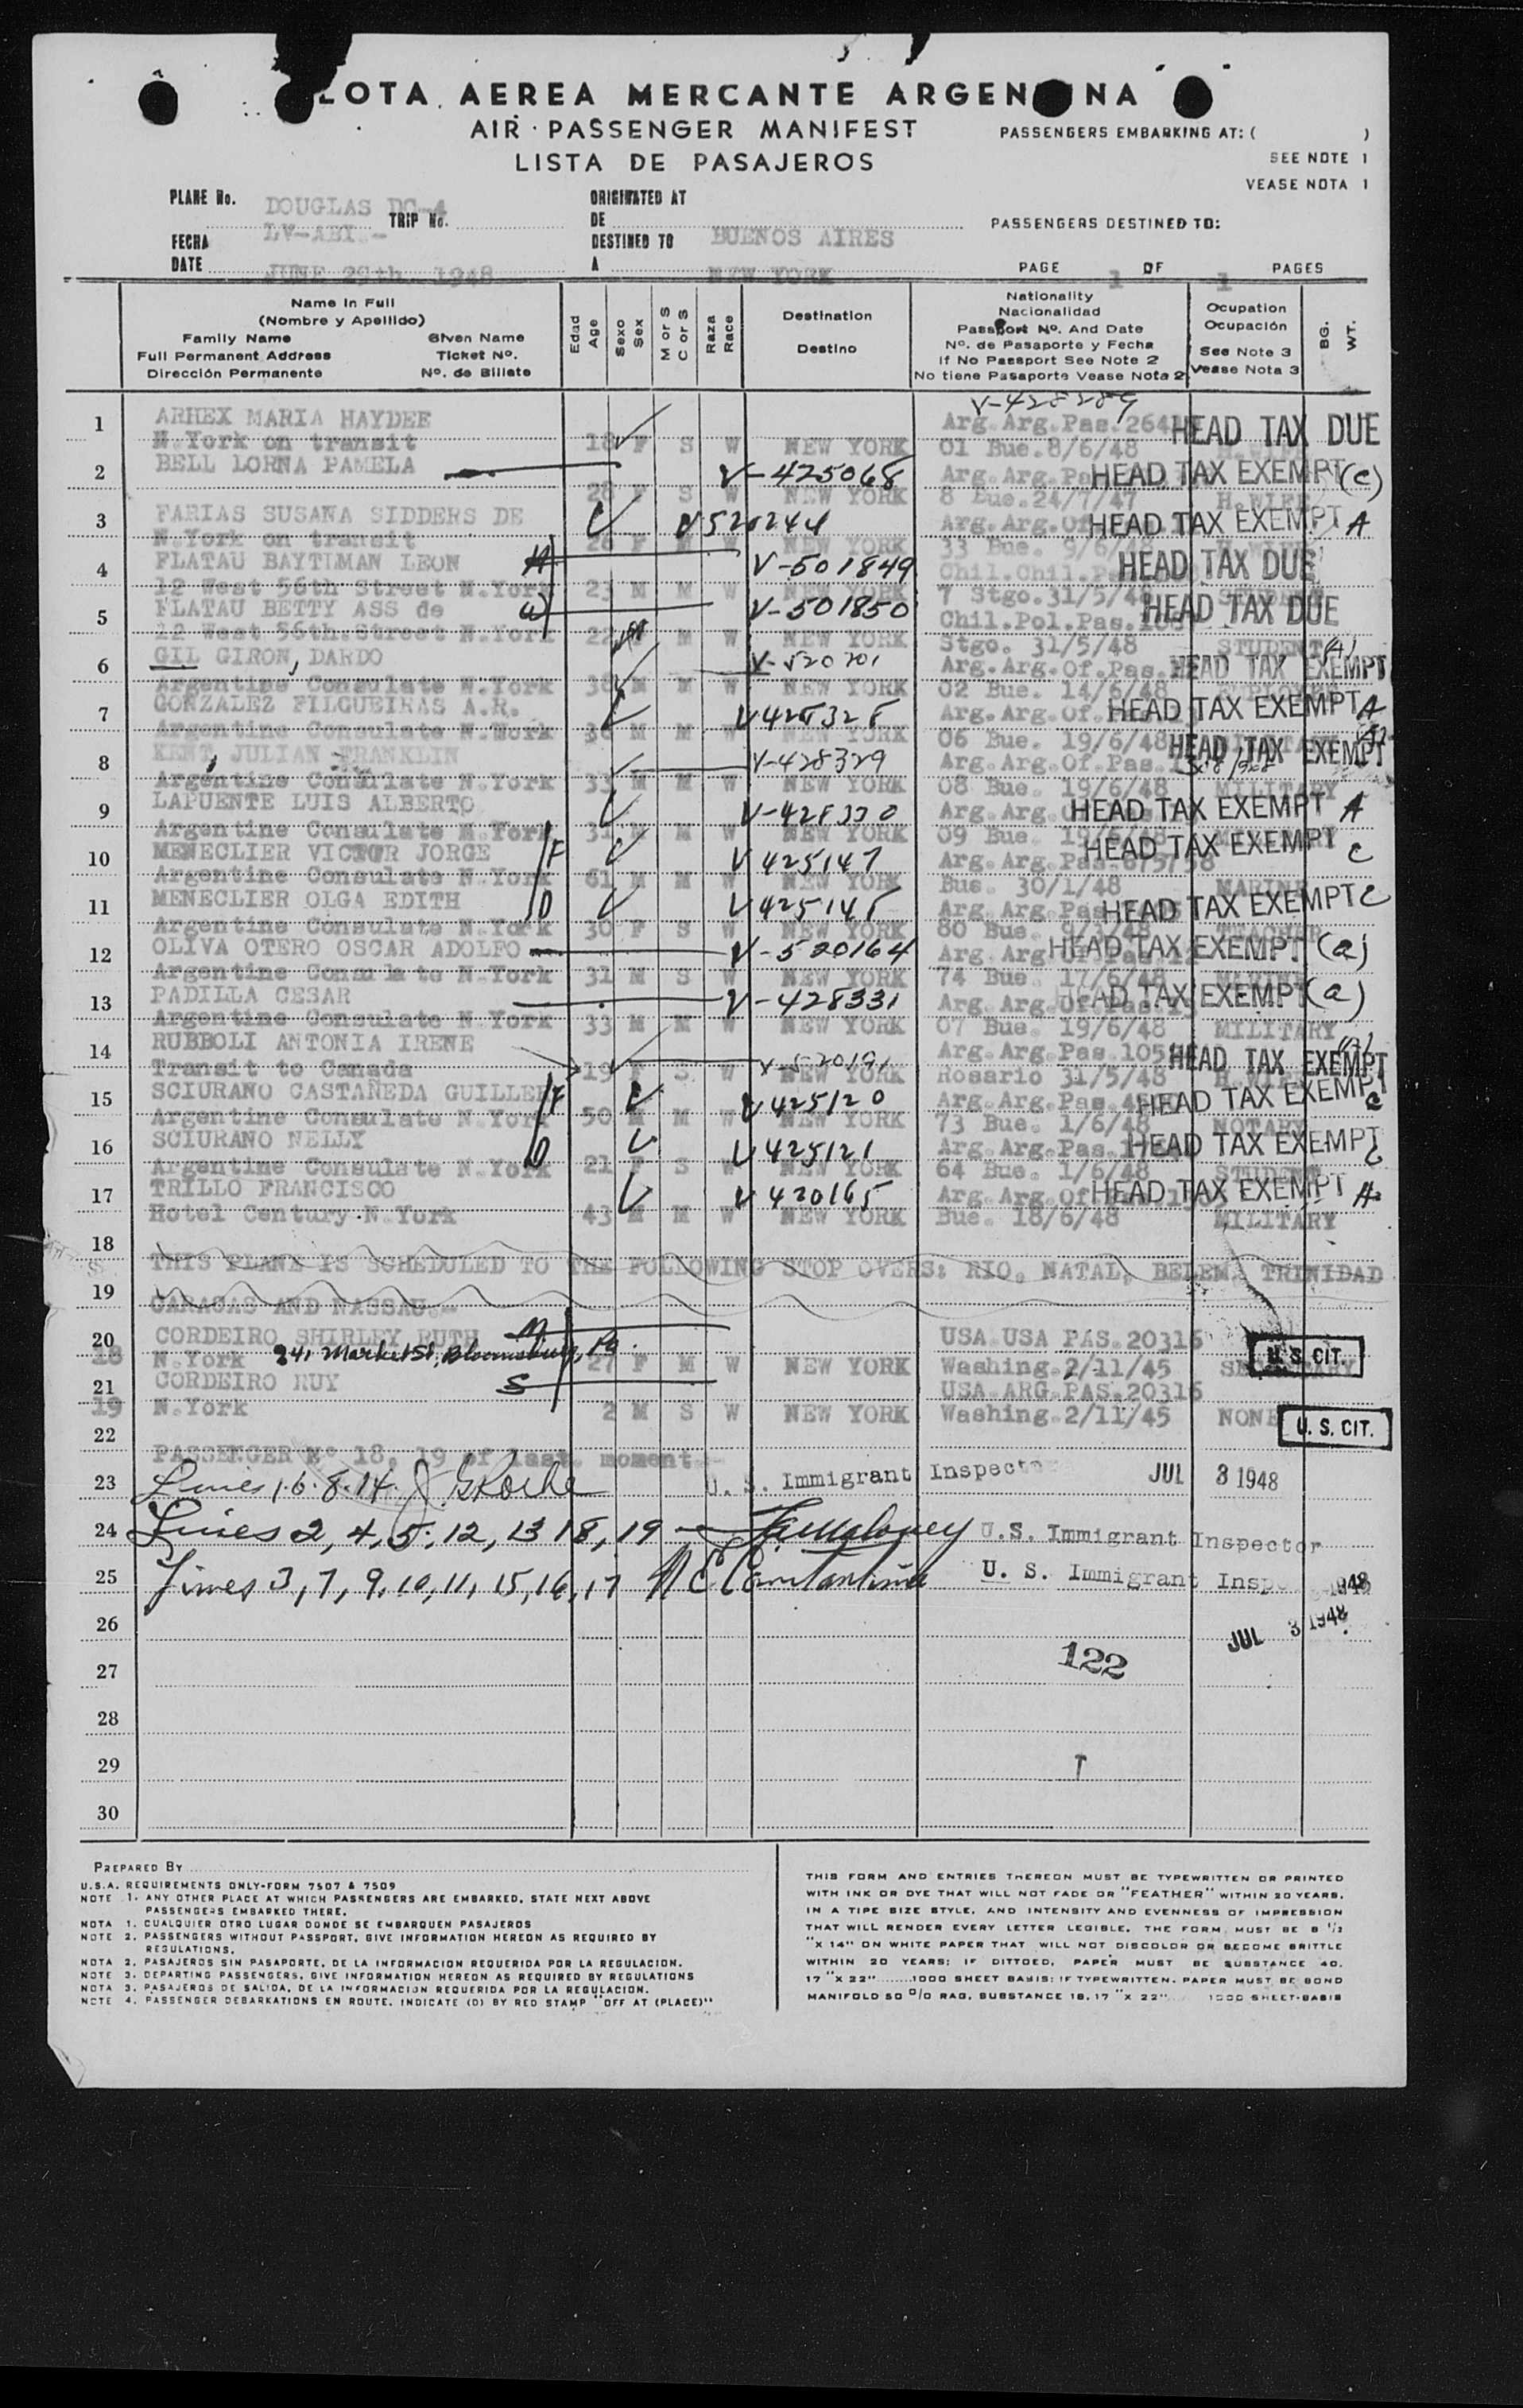 LOTA AEREA MERCANTE ARGEN NA
AIR PASSENGER MANIFEST
LISTA DE PASAJEROS
PASSENGERS EMBARKING AT: ( )
SEE NOTE 1
VEASE NOTA 1
PLANE No. DOUGLAS DC-4 TRIP No.
LV-ABI.-
ORIGINATED AT
DE BUENOS AIRES
PASSENGERS DESTINED TO:
FECHA
DATE JUNE 29th. 1948
DESTINED TO
A NEW YORK
PAGE 1 OF 1 PAGES
Name in Full
(Nombre y Apellido)
Family Name Given Name
Full Permanent Address Ticket No.
Dirección Permanente No. de Billete
Edad Age
Sexo Sex
M or S C or S
Raza Race
Destination
Destino
Nationality
Nacionalidad
Passport No. And Date
No. de Pasaporte y Fecha
If No Passport See Note 2
No tiene Pasaporte Vease Nota 2
Ocupation
Ocupación
See Note 3
Vease Nota 3
BG. WT.
V-428289
1 ARHEX MARIA HAYDEE Arg.Arg.Pas.264 HEAD TAX DUE
N.York on transit 18 F S W NEW YORK 01 Bue.8/6/48 H.WIFE
2 BELL LORNA PAMELA V-425068 Arg.Arg.Pa HEAD TAX EXEMPT (c)
28 F S W NEW YORK 8 Bue.24/7/47 H.WIFE
3 FARIAS SUSANA SIDDERS DE V520244 Arg.Arg.Of HEAD TAX EXEMPT A
N.York on transit 26 F M W NEW YORK 33 Bue. 9/6/48
4 FLATAU BAYTIMAN LEON H V-501849 Chil.Chil.Pa HEAD TAX DUE
12 West 56th Street N.York 23 M M W NEW YORK 7 Stgo.31/5/48
5 FLATAU BETTY ASS de W V-501850 Chil.Pol.Pas. HEAD TAX DUE
12 West 56th.Street N.York 22 M W NEW YORK Stgo. 31/5/48 STUDENT
6 GIL GIRON, DARDO V-520201 Arg.Arg.Of.Pas. HEAD TAX EXEMPT (A)
Argentine Consulate N.York 38 M M W NEW YORK 02 Bue. 14/6/48
7 GONZALEZ FILGUEIRAS A.R. V428328 Arg.Arg.Of. HEAD TAX EXEMPT A
Argentine Consulate N.Work 36 M M W NEW YORK 06 Bue. 19/6/48
8 KENT, JULIAN FRANKLIN V-428329 Arg.Arg.Of.Pas. HEAD TAX EXEMPT
Argentine Consulate N.York 33 M M W NEW YORK 08 Bue. 19/6/48 MILITARY
9 LAPUENTE LUIS ALBERTO V-428330 Arg.Arg. HEAD TAX EXEMPT A
Argentine Consulate N.York 31 M M W NEW YORK 09 Bue. 19/6/48
10 MENECLIER VICTOR JORGE F V425147 Arg.Arg.Pas.675758 HEAD TAX EXEMPT C
Argentine Consulate N.York 61 M M W NEW YORK Bue. 30/1/48 MARINE
11 MENECLIER OLGA EDITH D V425148 Arg.Arg.Pas HEAD TAX EXEMPT C
Argentine Consulate N.York 30 F S W NEW YORK 80 Bue. 9/3/48 TEACHER
12 OLIVA OTERO OSCAR ADOLFO V-520164 Arg.Arg. HEAD TAX EXEMPT (a)
Argentine Consulate N.York 31 M S W NEW YORK 74 Bue. 17/6/48 MARINE
13 PADILLA CESAR V-428331 Arg.Arg.Of.Pas.13 HEAD TAX EXEMPT (a)
Argentine Consulate N.York 33 M M W NEW YORK 07 Bue. 19/6/48 MILITARY
14 RUBBOLI ANTONIA IRENE V-520191 Arg.Arg.Pas.105 HEAD TAX EXEMPT
Transit to Canada 19 F S W NEW YORK Rosario 31/5/48
15 SCIURANO CASTAÑEDA GUILLER F V425120 Arg.Arg.Pas.4 HEAD TAX EXEMPT c
Argentine Consulate N.York 50 M M W NEW YORK 73 Bue. 1/6/48 NOTARY
16 SCIURANO NELLY D V425121 Arg.Arg.Pas. HEAD TAX EXEMPT C
Argentine Consulate N.York 21 F S W NEW YORK 64 Bue. 1/6/48 STUDENT
17 TRILLO FRANCISCO V420165 Arg.Arg.Of HEAD TAX EXEMPT A
Hotel Century N.York 43 M M W NEW YORK Bue. 18/6/48 MILITARY
18
THIS PLANE IS SCHEDULED TO THE FOLLOWING STOP OVERS: RIO, NATAL, BELEM, TRINIDAD
19
CARACAS AND NASSAU.-
20 CORDEIRO SHIRLEY RUTH M USA.USA PAS.20316
18 N.York 241 Market St, Bloomsburg, Pa. 27 F M W NEW YORK Washing.2/11/45 SECRETARY U.S. CIT.
21 CORDEIRO RUY S USA.ARG.PAS.20316
19 N.York 2 M S W NEW YORK Washing.2/11/45 NONE U.S. CIT.
22
PASSENGER No 18, 19 of last moment.-
23 Lines 1.6.8.14. J. G Roche U.S. Immigrant Inspector JUL 3 1948
24 Lines 2, 4, 5, 12, 13 18, 19 U.S. Immigrant Inspector
25 Lines 3, 7, 9, 10, 11, 15, 16, 17 U. S. Immigrant Insp 1948
26 JUL 3 1948
27 122
28
29 T
30
PREPARED BY
U.S.A. REQUIREMENTS ONLY-FORM 7507 & 7509
NOTE 1. ANY OTHER PLACE AT WHICH PASSENGERS ARE EMBARKED, STATE NEXT ABOVE
PASSENGERS EMBARKED THERE.
NOTA 1. CUALQUIER OTRO LUGAR DONDE SE EMBARQUEN PASAJEROS
NOTE 2. PASSENGERS WITHOUT PASSPORT, GIVE INFORMATION HEREON AS REQUIRED BY
REGULATIONS.
NOTA 2. PASAJEROS SIN PASAPORTE, DE LA INFORMACION REQUERIDA POR LA REGULACION.
NOTE 3. DEPARTING PASSENGERS, GIVE INFORMATION HEREON AS REQUIRED BY REGULATIONS
NOTA 3. PASAJEROS DE SALIDA, DE LA INFORMACION REQUERIDA POR LA REGULACION.
NOTE 4. PASSENGER DEBARKATIONS EN ROUTE, INDICATE (D) BY RED STAMP "OFF AT (PLACE)"
THIS FORM AND ENTRIES THEREON MUST BE TYPEWRITTEN OR PRINTED
WITH INK OR DYE THAT WILL NOT FADE OR "FEATHER" WITHIN 20 YEARS,
IN A TIPE SIZE STYLE, AND INTENSITY AND EVENNESS OF IMPRESSION
THAT WILL RENDER EVERY LETTER LEGIBLE. THE FORM MUST BE 8 1/2
"X 14" ON WHITE PAPER THAT WILL NOT DISCOLOR OR BECOME BRITTLE
WITHIN 20 YEARS; IF DITTOED, PAPER MUST BE SUBSTANCE 40,
17 "X 22"......1000 SHEET BASIS; IF TYPEWRITTEN, PAPER MUST BE BOND
MANIFOLD 50 0/0 RAG, SUBSTANCE 18, 17 "X 22".... 1000 SHEET-BASIS